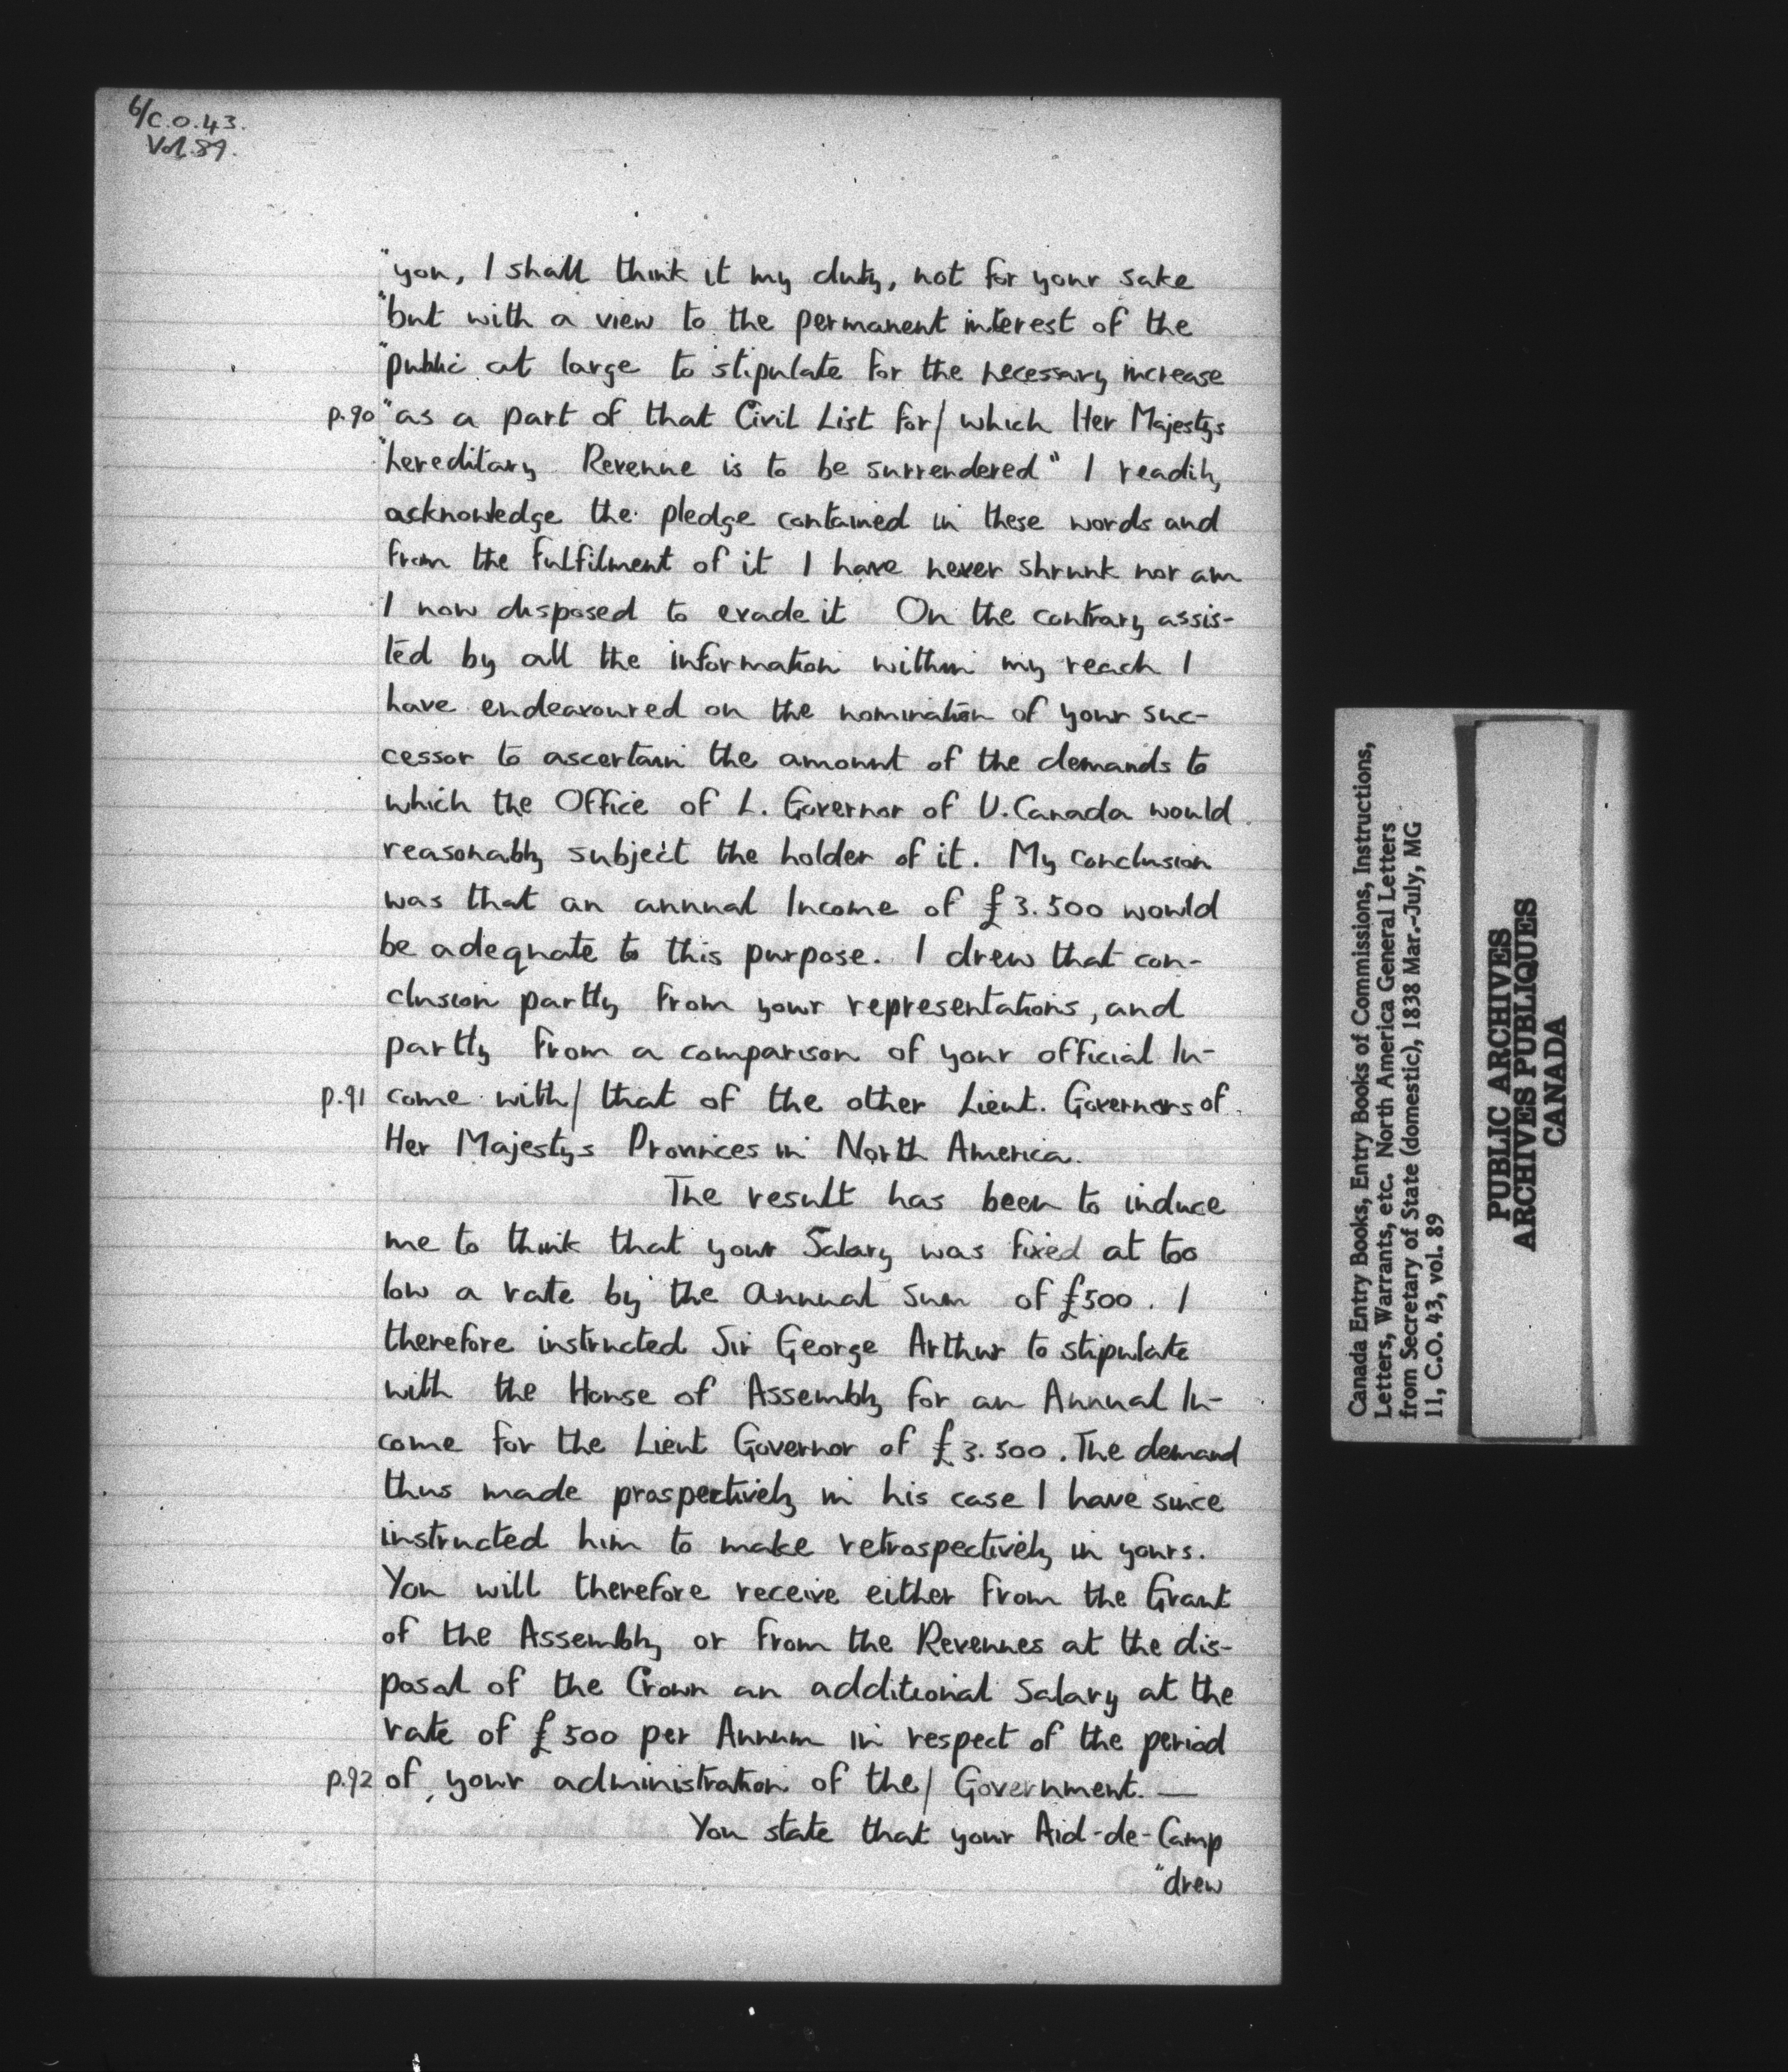 6/C.O.43.
Vol.89.
"you, I shall think it my duty, not for your sake
"but with a view to the permanent interest of the
"public at large to stipulate for the necessary increase
p.90 "as a part of that Civil List for/ which Her Majestys
"hereditary Revenue is to be surrendered" I readily
acknowledge the pledge contained in these words and
from the fulfilment of it I have never shrunk nor am
I now disposed to evade it On the contrary assis-
ted by all the information within my reach I
have endeavoured on the nomination of your suc-
cessor to ascertain the amount of the demands to
which the Office of L. Governor of U. Canada would
reasonably subject the holder of it. My conclusion
was that an annual Income of £3.500 would
be adequate to this purpose. I drew that con-
clusion partly from your representations, and
partly from a comparison of your official In-
p.91 come with/ that of the other Lieut. Governors of
Her Majestys Provinces in North America.
The result has been to induce
me to think that your Salary was fixed at too
low a rate by the Annual Sum of £500. I
therefore instructed Sir George Arthur to stipulate
with the House of Assembly for an Annual In-
come for the Lieut Governor of £3.500. The demand
thus made prospectively in his case I have since
instructed him to make retrospectively in yours.
You will therefore receive either from the Grant
of the Assembly or from the Revenues at the dis-
posal of the Crown an additional Salary at the
rate of £500 per Annum in respect of the period
p.92 of your administration of the/ Government. —
You state that your Aid-de-Camp
"drew
Canada Entry Books, Entry Books of Commissions, Instructions,
Letters, Warrants, etc. North America General Letters
from Secretary of State (domestic), 1838 Mar.-July, MG
11, C.O. 43, vol. 89
PUBLIC ARCHIVES
ARCHIVES PUBLIQUES
CANADA